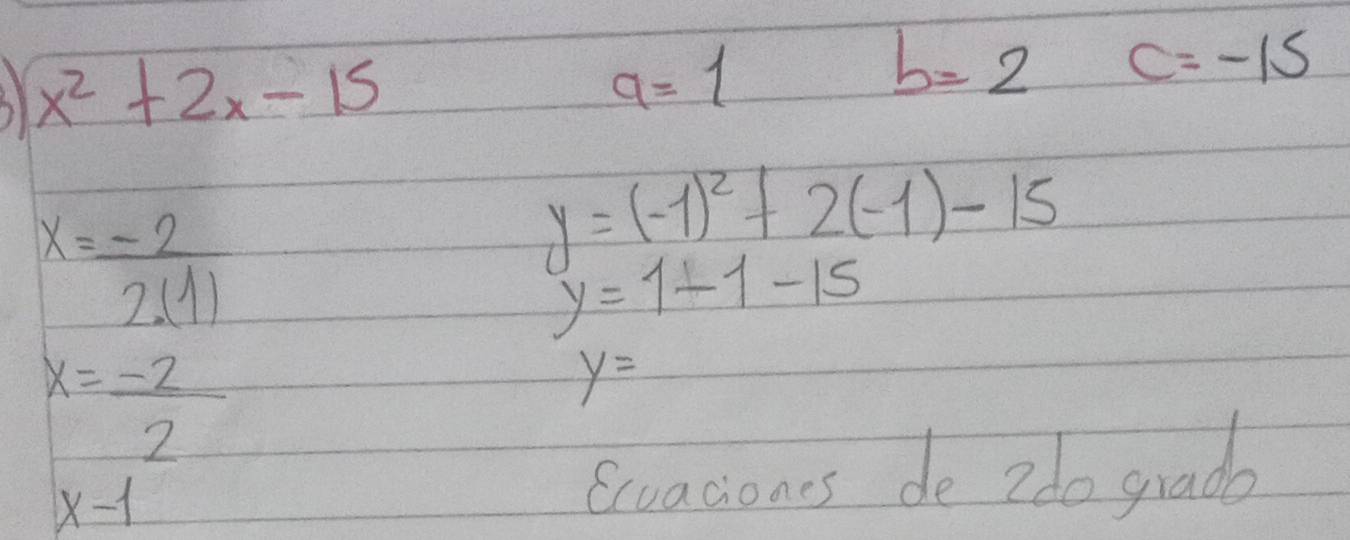 3) x² + 2x - 15 a = 1 b = 2 c = -15
x = -2 / 2.(1)
y = (-1)² + 2(-1) - 15
y = 1 - 1 - 15
x = -2 / 2
y =
x - 1
Ecuaciones de 2do grado